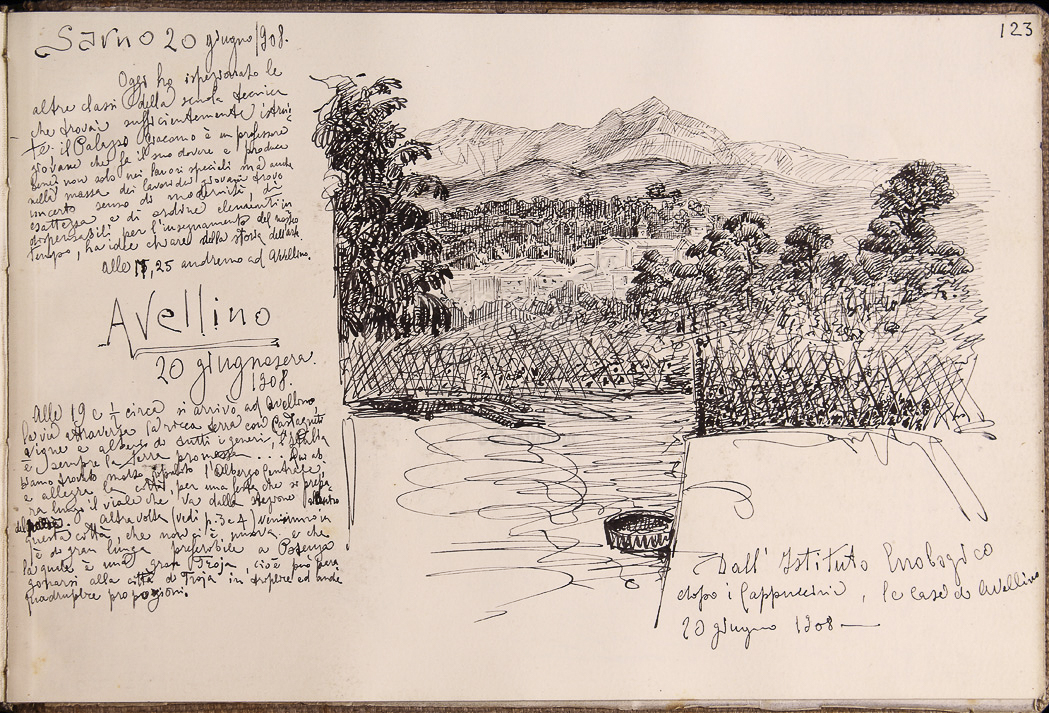 123
Sarno 20 giugno 1908.
Oggi ho ispezionato le
altre classi della scuola tecnica
che trovai sufficientemente istrui-
te. il Palazzo Giacomo è un professore
giovane che fa il suo dovere e produce
non solo nei lavori speciali ma anche
nella massa dei lavori de' giovani trovo
un certo senso di modernità, di
esattezza e di ordine elementi in
dispensabili per l'insegnamento del nostro
tempo, ha idee chiare della storia dell'arte.
Alle 17,25 andremo ad Avellino.
Avellino
20 giugno sera
1908.
Alle 19 e ½ circa si arrivò ad Avellino,
la via attraversa la ricca terra con Castagneti
vigne e alberi di tutti i generi, l'Italia
è sempre la terra promessa .... Qui ab
biamo trovato l'Albergo Centrale,
e allegra la città, per una festa che si prepa
ra lungo il viale che va dalla stazione
Altra volta (vedi p. 3 e 4) venimmo in
questa città, che non ci è nuova e che
è di gran lunga preferibile a Potenza
la quale è una gran Troja, cioè può para
gonarsi alla città di Troja in triplice ed anche
quadruplice proporzioni.
Dall' Istituto Enologico
dopo i Cappuccini, le case di Avellino
20 giugno 1908 —